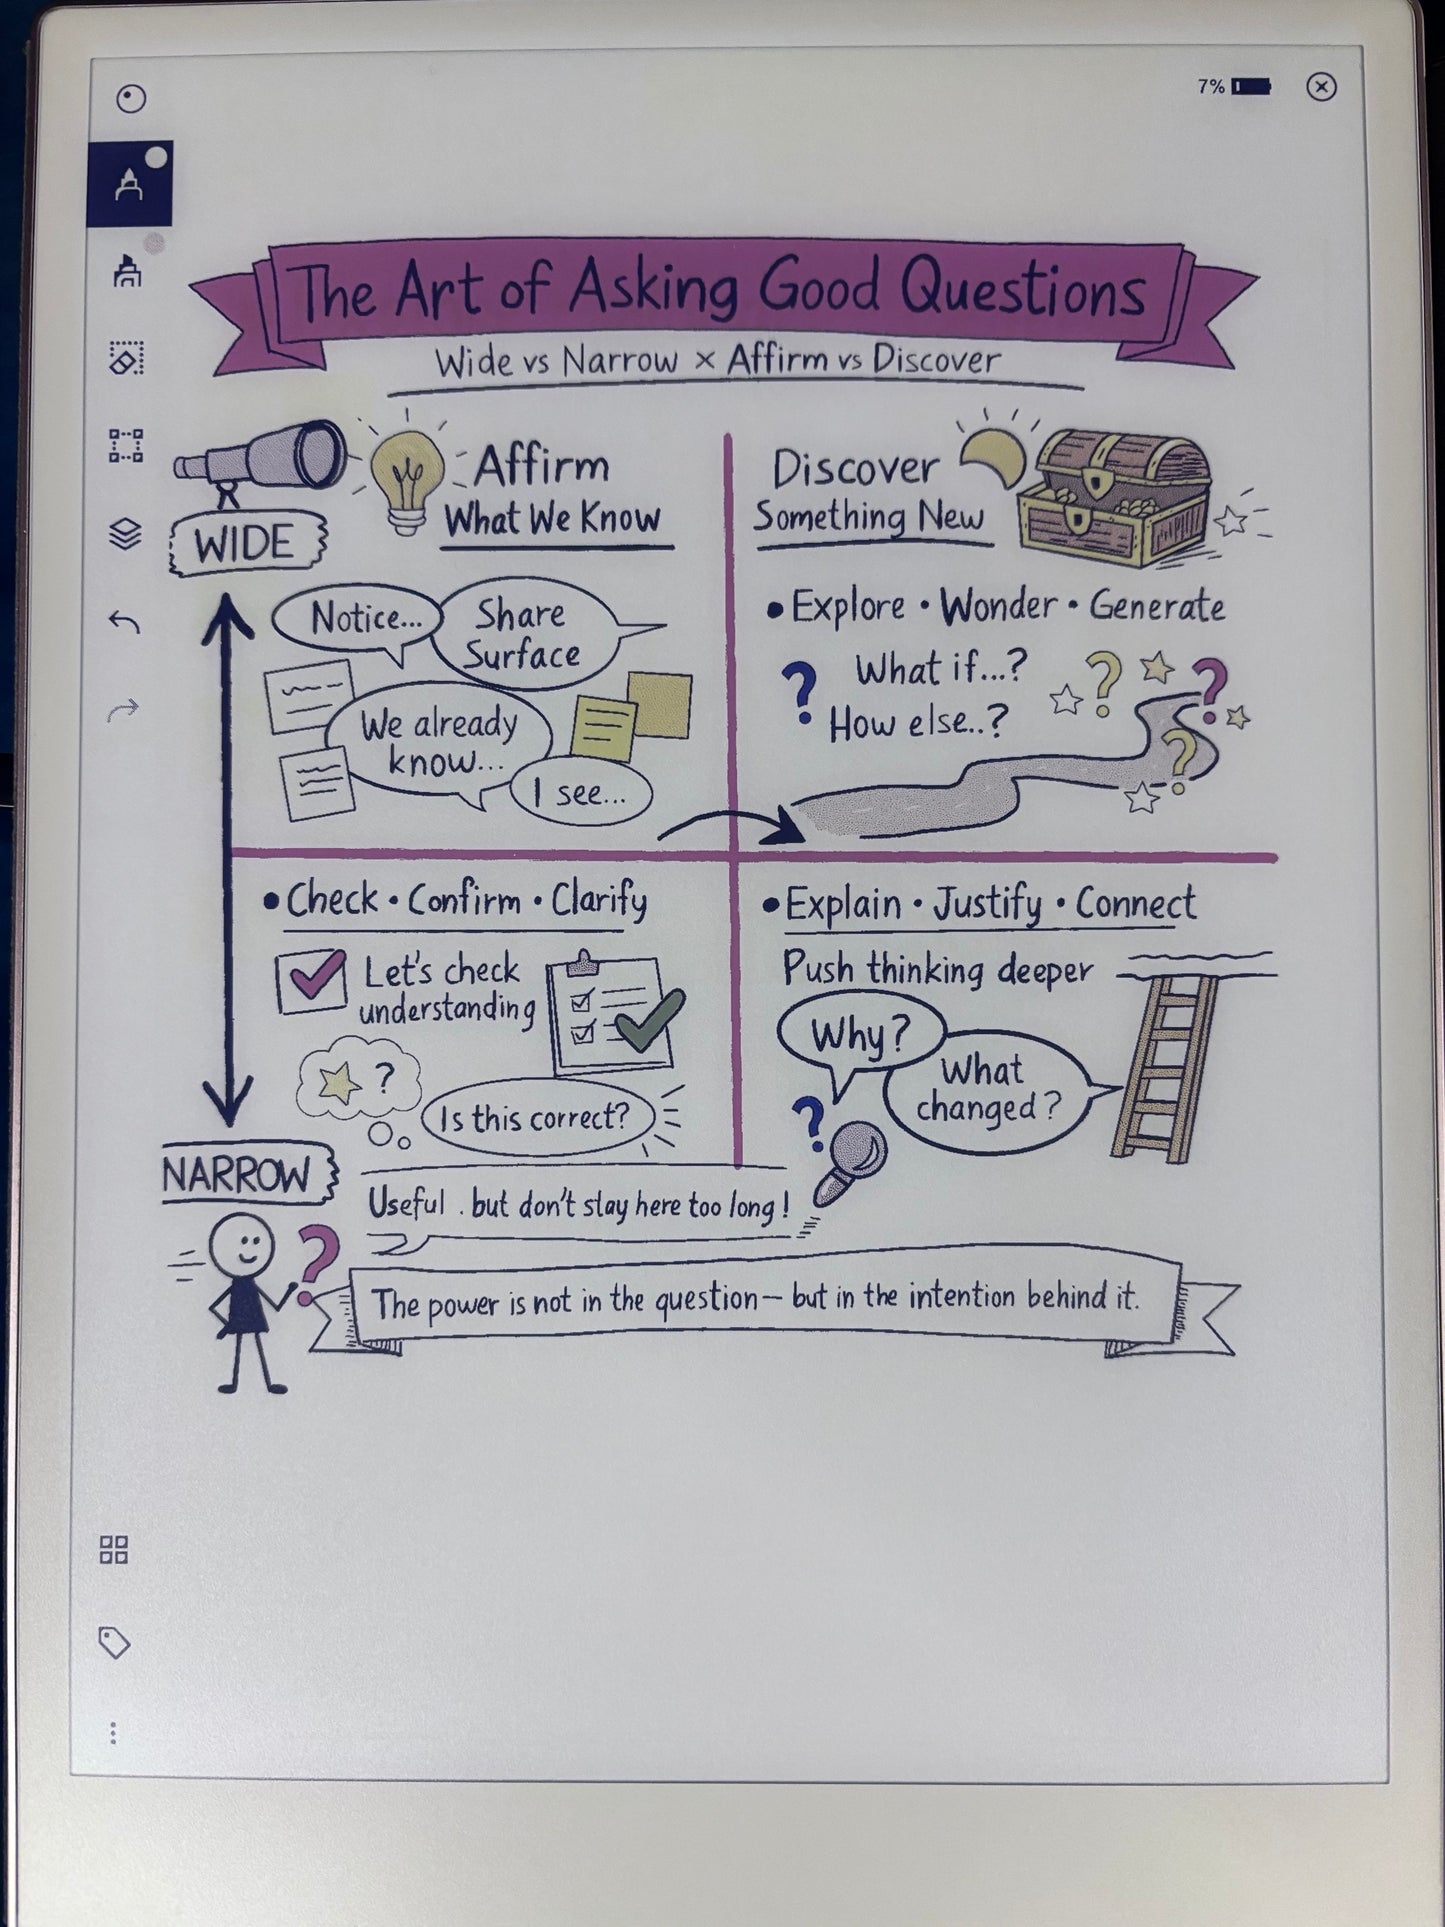 7%
The Art of Asking Good Questions
Wide vs Narrow × Affirm vs Discover
WIDE
Affirm
What We Know
Notice...
Share
Surface
We already
know...
I see...
Discover
Something New
• Explore • Wonder • Generate
What if...?
How else..?
? ? ? ?
• Check • Confirm • Clarify
Let's check
understanding
?
Is this correct?
Useful . but don't stay here too long!
• Explain • Justify • Connect
Push thinking deeper
Why?
What
changed?
?
NARROW
?
The power is not in the question — but in the intention behind it.